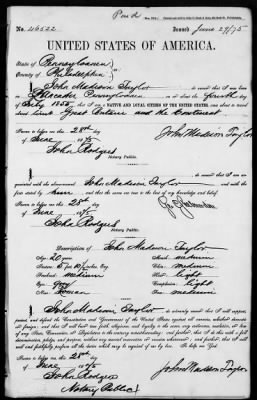 Paid
No. 46522 Issued June 29/75
UNITED STATES OF AMERICA.
State of Pennsylvania
County of Philadelphia
I, John Madison Taylor do swear that I was born
in Lancaster Pennsylvania on the fourth
of July 1855, that I am a NATIVE AND LOYAL CITIZEN OF THE UNITED STATES, and about to travel
abroad Great Britain and the Continent
Sworn to before me this 28th
day of June 1875 John Madison Taylor
John Rodgers
Notary Public.
acquainted with the above-named John Madison Taylor and that the facts
stated by him are true to the best of my knowledge and belief.
Sworn to before me this 28th
day of June 1875
John Rodgers
Notary Public.
Description of John Madison Taylor
Age: 20 years Mouth: medium
Stature: 5 feet 10 inches, Eng. Chin: medium
Forehead: medium Hair: light
Eyes: grey Complexion: light
Nose: roman Face:
I, John Madison Taylor do solemnly swear that I will support,
protect, and defend the Constitution and Government of the United States against all enemies, whether domestic
or foreign; and that I will bear true faith, allegiance, and loyalty to the same, any ordinance, resolution, or law
of any State, Convention, or Legislature to the contrary notwithstanding; and further, that I do this with a full
determination, pledge, and purpose, without any mental reservation or evasion whatsoever; and further, that I will
well and faithfully perform all the duties which may be required of me by law. So help me God.
Sworn to before me this 28th
day of June 1875 John Madison Taylor
John Rodgers
Notary Public